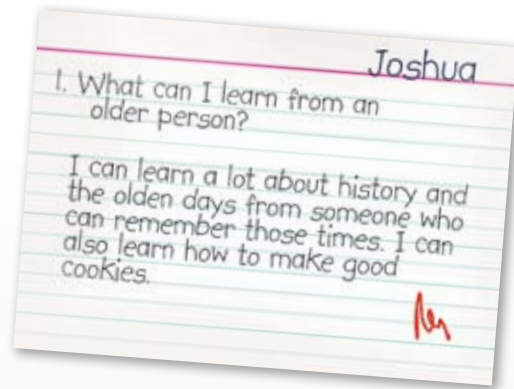 Joshua
1. What can I learn from an
older person?
I can learn a lot about history and
the olden days from someone who
can remember those times. I can
also learn how to make good
cookies.